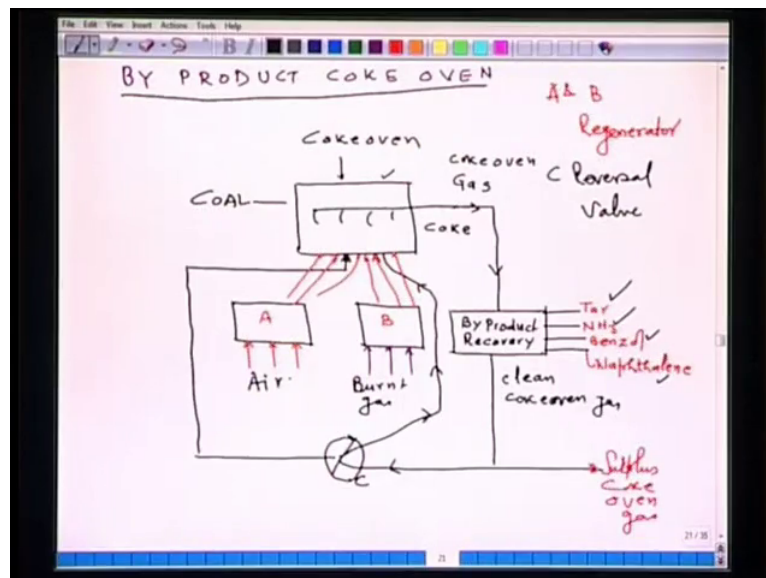 File Edit View Insert Actions Tools Help
B I
BY PRODUCT COKE OVEN
A & B
Regenerator
C Reversal
Valve
Cokeoven
COAL
cokeoven
Gas
Coke
A
B
Air.
Burnt
gas
By Product
Recovery
Tar
NH3
Benzol
Naphthalene
clean
cokeoven gas
C
Sulplus
Coke
oven
gas
21 / 35
21